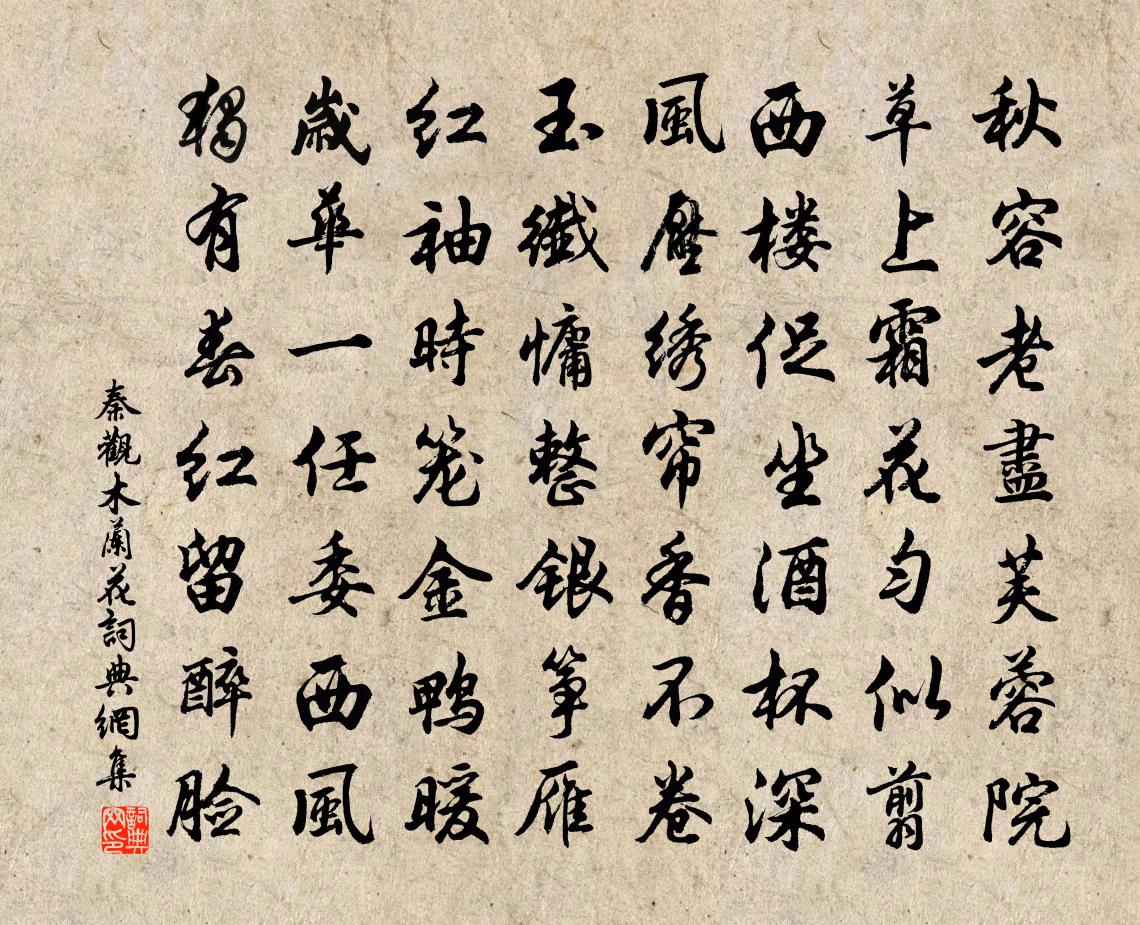 秋容老盡芙蓉院
草上霜花匀似剪
西楼促坐酒杯深
風壓绣帘香不卷
玉纖慵整銀筝雁
红袖時笼金鸭暖
歲華一任委西風
獨有春红留醉脸
秦觀木蘭花詞典網集
詞典网印